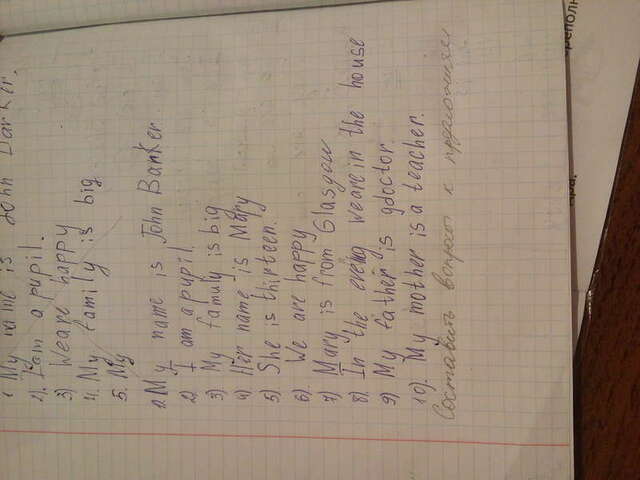 1. My name is John Barker.
2). I am a pupil.
3) We are happy
4. My family is big
5. My
1. My name is John Barker
2) I am a pupil.
3) My famuly is big
4) Her name is Mary
5) She is thirteen.
6). We are happy
7) Mary is from Glasgow
8). In the evening we are in the house
9) My father is a doctor.
10). My mother is a teacher.
Составить вопросы к предложениям
ара.
реполн